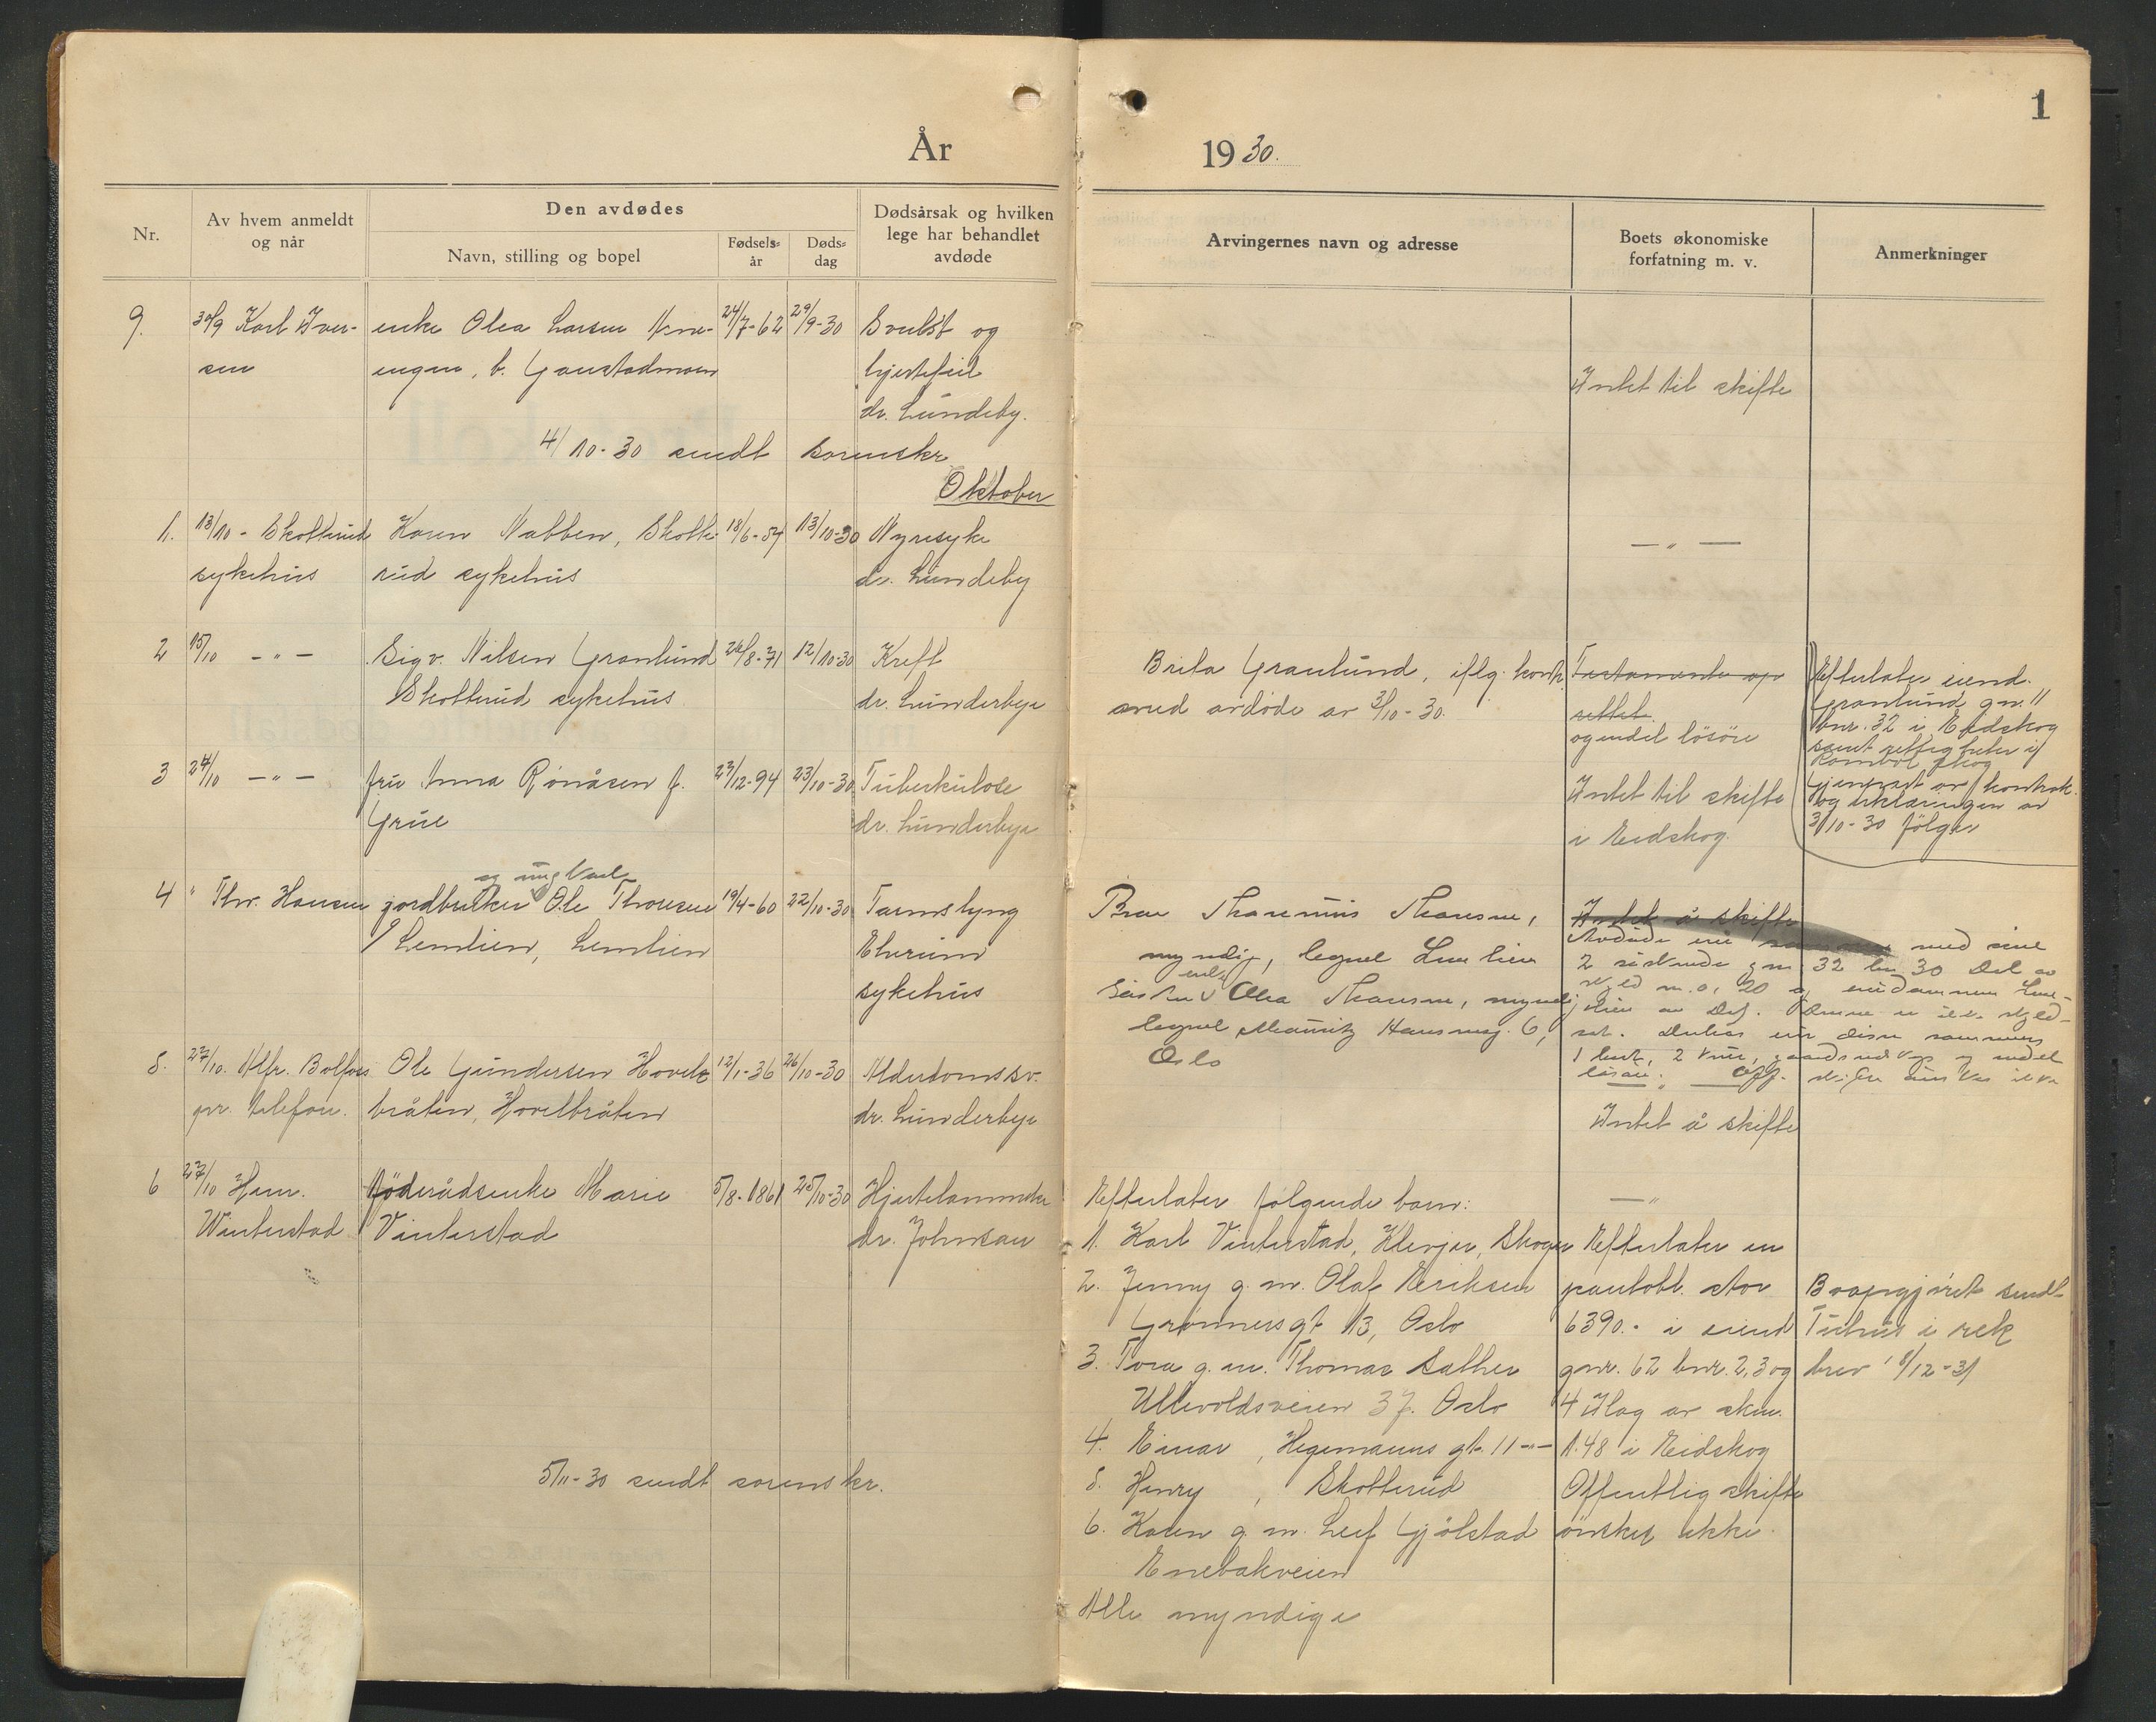 1
År 1930.
Nr.
Av hvem anmeldt
og når
Den avdødes
Navn, stilling og bopel
Fødsels-
år
Døds-
dag
Dødsårsak og hvilken
lege har behandlet
avdøde
Arvingernes navn og adresse
Boets økonomiske
forfatning m. v.
Anmerkninger
9. 30/9 Karl Iver- enke Olea Larsen 24/7-62 29/9-30 Svulst og
sen b. Gaustadmoen hjertefeil
Intet til skifte
dr. Lundeby.
4/10-30 sendt sorenskr.
Oktober
1. 13/10 - Skotterud Karen Nabben, Skotte- 18/6-54 13/10-30 Nyresyke — " —
sykehus rud sykehus dr. Lundeby
2 15/10 — " — Sigv. Nilsen Granlund 26/8-71 12/10-30 Kreft
Skotterud sykehus dr. Lunderbye
Brita Granlund, iflg. kontr.
med avdøde av 3/10-30.
Testamente op
rettet.
og endel løsøre
Efterlater eiend.
Granlund gnr. 11
bnr. 32 i Eidskog
samt rettigheter i
skog
Gjenpart av kontrak.
og erklæringen av
3/10-30 følger
3 24/10 — " — fru Anna Rønåsen f. 27/12-94 23/10-30 Tuberkulose
Grue dr. Lunderbye
Intet til skifte
i Eidskog.
og ungkarl
4 " Thv. Hansen jordbruker Ole Thoresen 19/4-60 22/10-30 Tarmslyng
Lemlien, Lemlien Elverum
sykehus
Bror Tharenius Thoresen,
myndig, bopæl Lemlien
enke
Søster Olea Thoresen, myndig
bopæl Mauritz Hansensg. 6,
Oslo
Intet å skifte
Avdøde eier med sine
2 søskende gnr 32 bnr 30 Del av
1 hest, 2 kuer, gaardsredskap og endel
løsøre.
5. 27/10. Alfr. Bolfoss Ole Gundersen Hovel- 12/1-36 26/10-30 Alderdomssv.
pr. telefon. bråten, Hovelbråten dr. Lunderbye
Intet å skifte
6 27/10 Henr. Föderådsenke Marie 5/8-1861 25/10-30 Hjertelammelse
Winterstad Vinterstad dr. Johnsen
— " —
Efterlater følgende barn:
1. Karl Vinterstad, Klevjer, Skoger
2. Jenny g. m. Olaf Eriksen
Grønnersgt 13, Oslo
3. Tora g. m. Thomas Sæther
Ullevoldsveien 37. Oslo
4. Einar , Hegemanns gt. 11 -"-
5. Henry , Skotterud
6. Karen g. m. Leif Gjølstad
Enebakveien
Alle myndige
Efterlater en
pantobl. stor
6390.- i eiend
gnr. 62 bnr. 2, 3 og
4 Ilag av skm.
1.48 i Eidskog
Offentlig skifte
ønskes ikke.
Boopgjöret sendt
i rek
brev 18/12-31
5/11-30 sendt sorenskr.